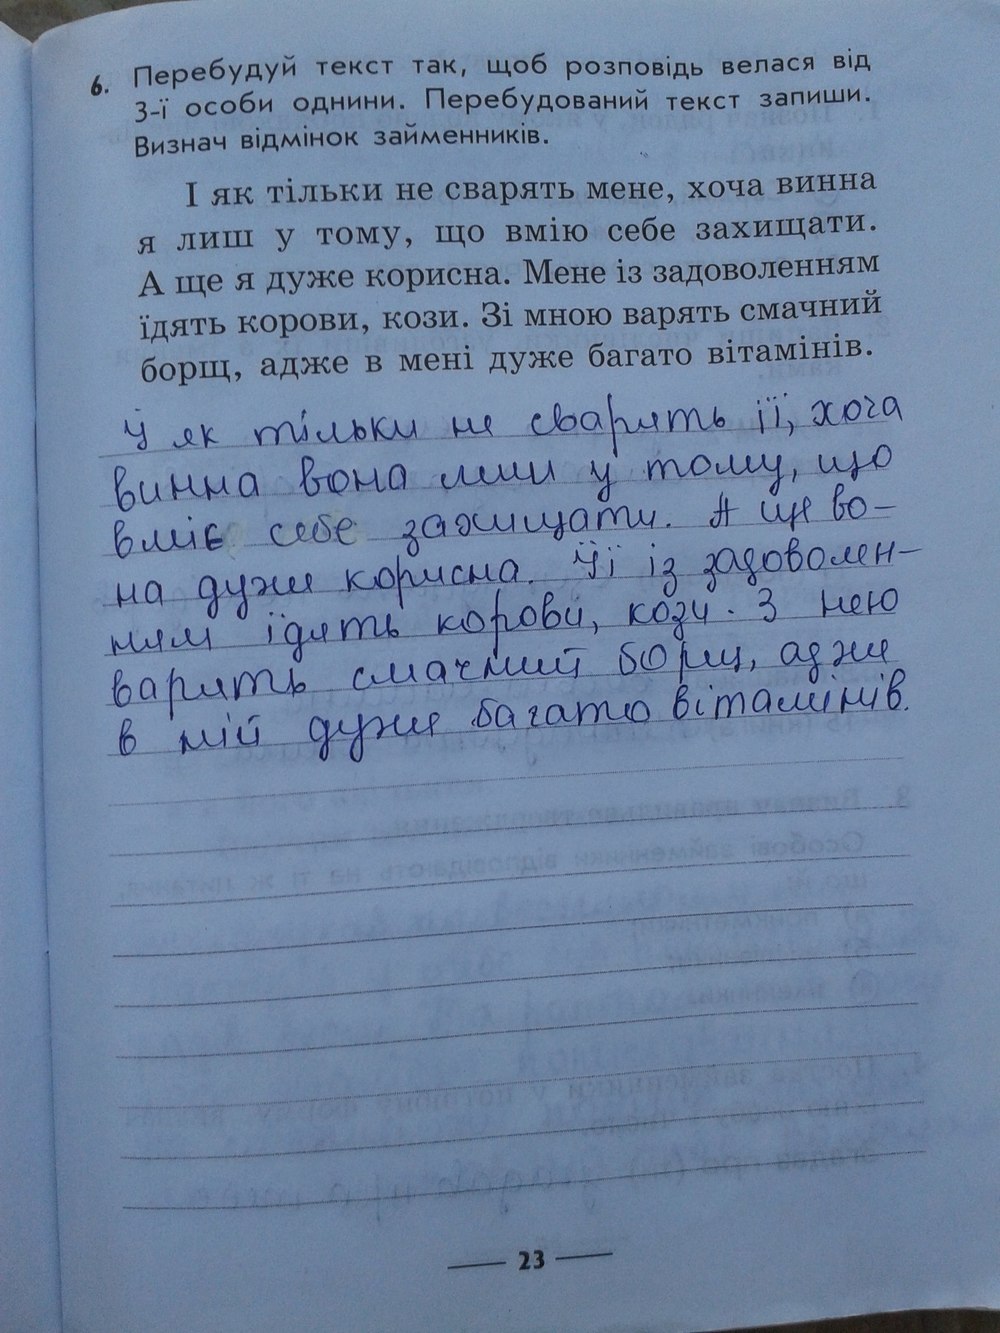 6. Перебудуй текст так, щоб розповідь велася від
3-ї особи однини. Перебудований текст запиши.
Визнач відмінок займенників.
І як тільки не сварять мене, хоча винна
я лиш у тому, що вмію себе захищати.
А ще я дуже корисна. Мене із задоволенням
їдять корови, кози. Зі мною варять смачний
борщ, адже в мені дуже багато вітамінів.
Й як тільки не сварять її, хоча
винна вона лиш у тому, що
вміє себе захищати. А ще во-
на дуже корисна. Її із задоволен-
ням їдять корови, кози. З нею
варять смачний борщ, адже
в ній дуже багато вітамінів.
23